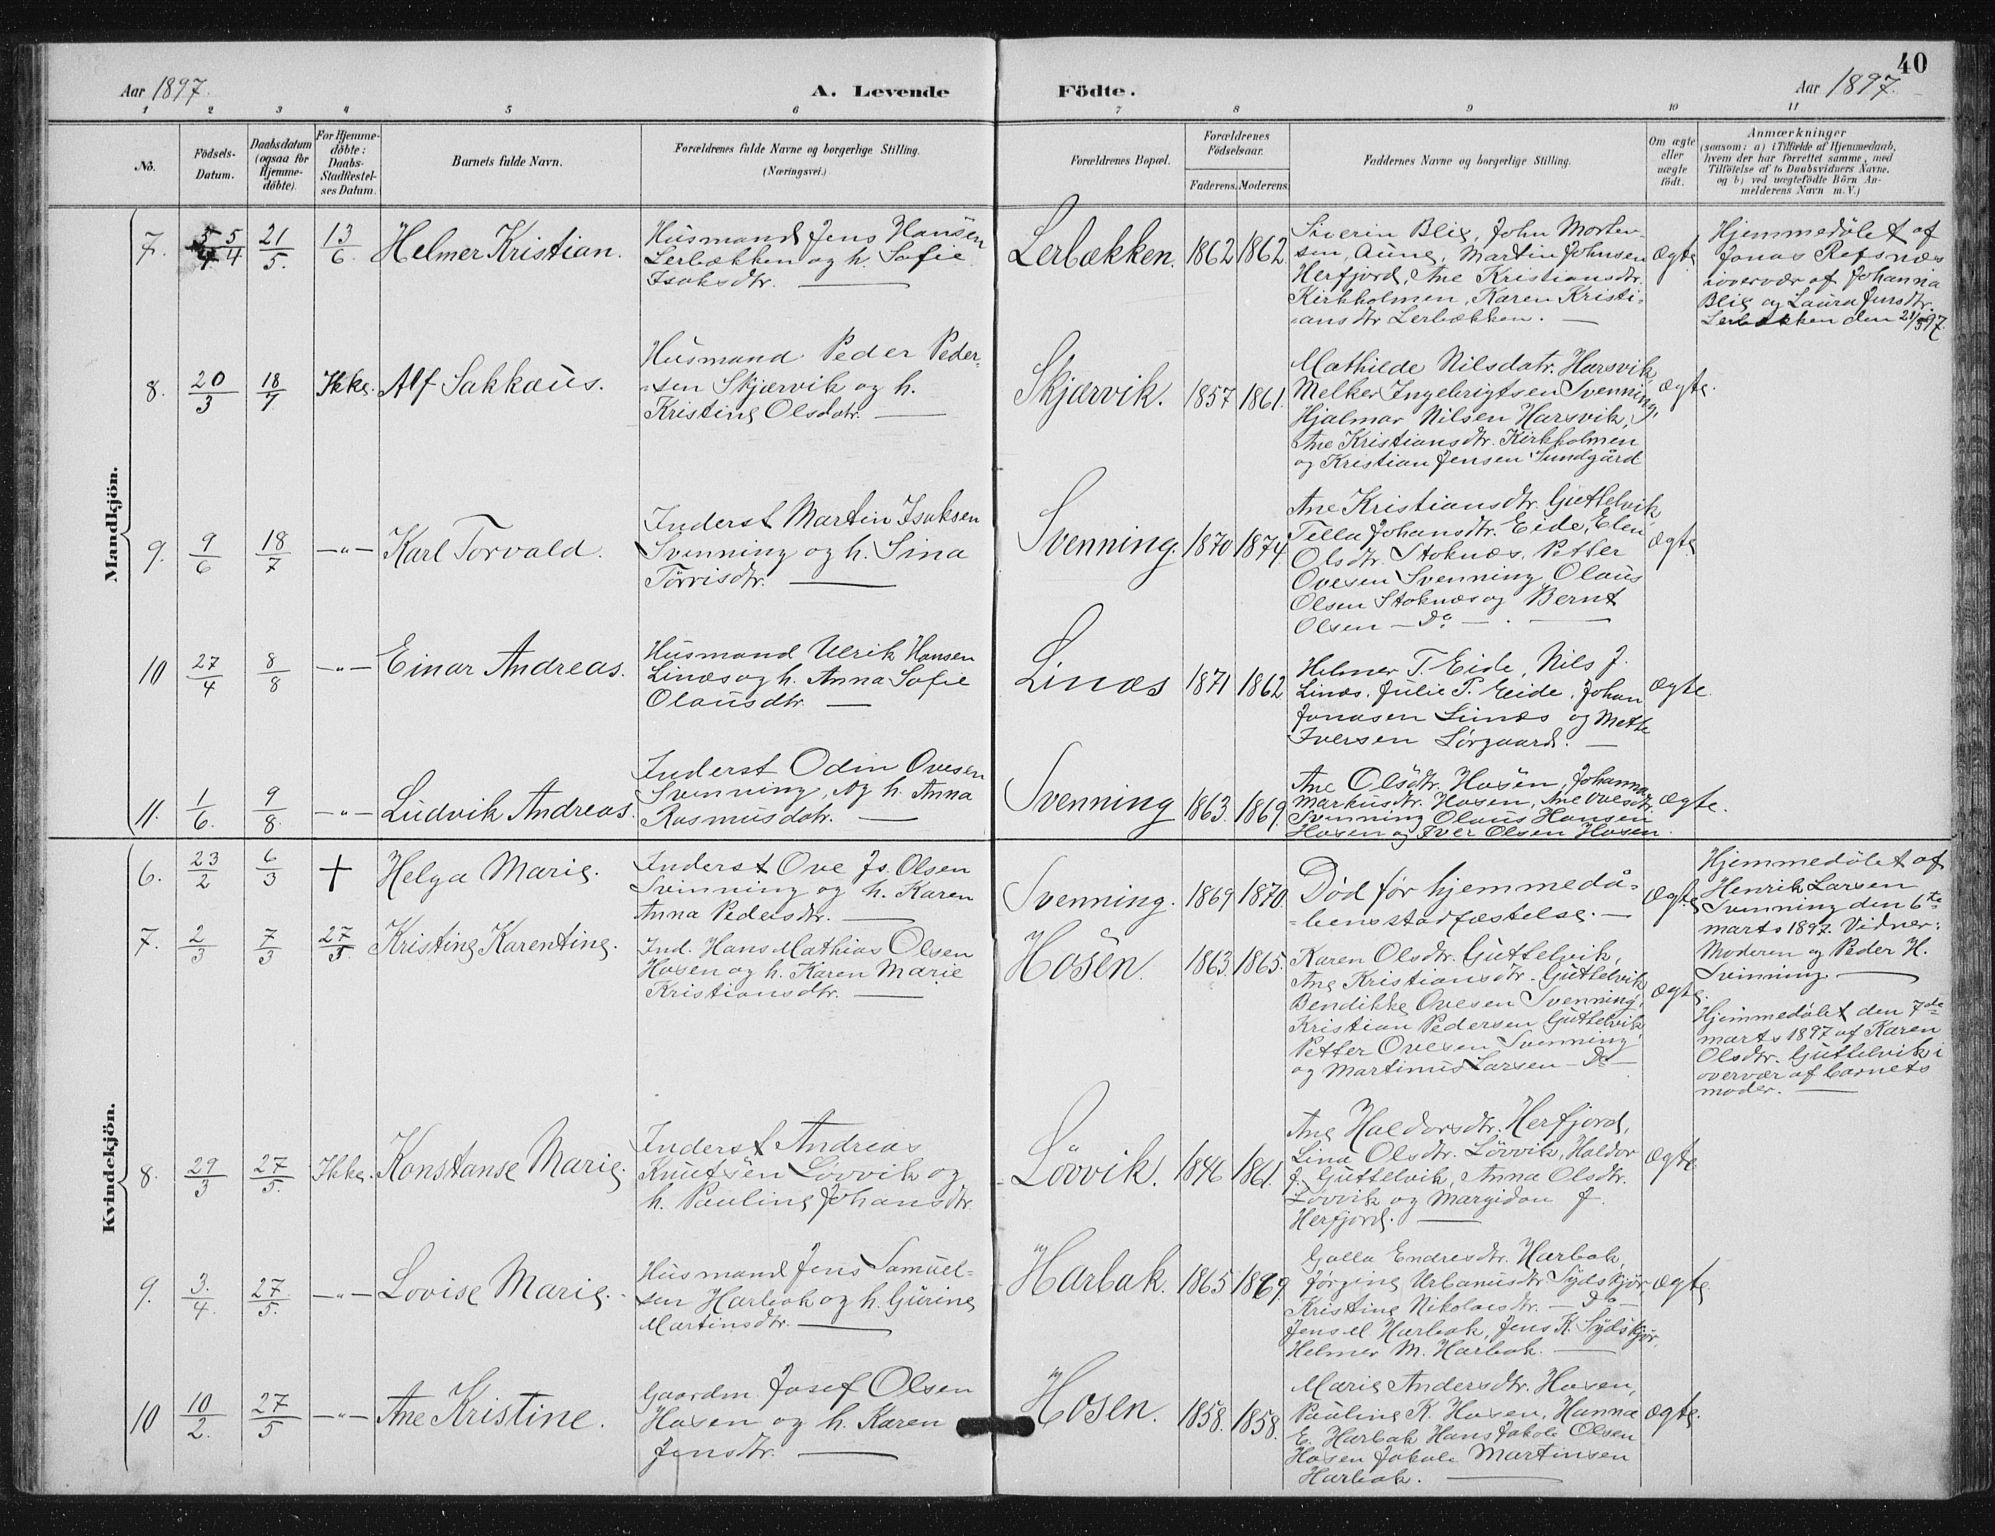 40
Aar 1897.
A. Levende
Födte.
Aar 1897.
1 2 3 4 5 6 7 8 9 10 11
No.
Födsels-
Datum.
Daabsdatum
(ogsaa for
Hjemme-
döbte).
For Hjemme-
döbte:
Daabs-
Stadfæstel-
ses Datum.
Barnets fulde Navn.
Forældrenes fulde Navne og borgerlige Stilling.
(Næringsvei.)
Forældrenes Bopæl.
Forældrenes
Födselsaar.
Faderens. Moderens.
Faddernes Navne og borgerlige Stilling.
Om ægte
eller
uægte
födt.
Anmærkninger
(saasom: a) i Tilfælde af Hjemmedaab,
hvem der har forrettet samme, med
Tilföielse af to Daabsvidners Navne.
og b) ved uægtefödte Börn An-
melderens Navn m. V.)
Mandkjön.
7. 5/4 21/5. 13/6 Helmer Kristian.
Husmand Jens Hansen
Lerbækken og h. Sofie
Isaksdtr.
Lerbækken. 1862 1862.
Siverin Blig, John Morten-
sen, Aune, Martin Johnsen
Herfjord, Ane Kristiansdtr.
Kirkholmen, Karen Kristi-
ansdtr Lerbækken.
Ægte
Hjemmedøbt af
Jonas Refsnæs
i overvær af Johanna
Blig og Laura Jensdtr.
Lerbækken den 21/5 97.
8. 20/3 18/7 Ikke. Alf Sakkæus.
Husmand Peder Peder-
sen Skjærvik og h.
Kristine Olsdatr.
Skjærvik. 1857 1861.
Mathilde Nilsdatr. Harsvik
Melker Ingebrigtsen Svenning,
Hjalmar Nilsen Harsvik,
Ane Kristiansdtr. Kirkholmen
og Kristian Jensen Sundgård
Ægte.
9. 9/6 18/7 —"— Karl Torvald.
Inderst Martin Isaksen
Svenning og h. Sina
Törrisdtr.
Svenning. 1870 1874.
Ane Kristiansdtr. Guttelvik
Tella Johansdtr. Eide, Elen
Olsdtr. Stoknæs, Petter
Ovesen Svenning, Olaus
Olsen Stoknæs og Bernt
Olsen — Do —
Ægte
10 27/4 8/8 —"— Einar Andreas.
Husmand Ulrik Hansen
Linæs og h. Anna Sofie
Olausdtr.
Linæs 1871 1862
Helmer T. Eide, Nils J.
Linæs, Julie P. Eide, Johan
Jonasen Linæs og Mette
Iversen Sörgaard.
Ægte.
11. 1/6. 9/8. —"— Ludvik Andreas.
Inderst Odin Ovesen
Svenning, og h. Anna
Rasmusdatr.
Svenning 1863. 1869.
Ane Olsdtr. Hosen, Johanna
Markusdtr. Hosen, Ane Ovesdtr.
Svenning Olaus Hansen
Hosen og Iver Olsen Hosen.
Ægte.
Kvindekjön.
6. 23/2 6/3 + Helga Marie.
Inderst Ove Js. Olsen
Svinning og h. Karen
Anna Pedersdtr.
Svenning. 1869 1870.
Död för hjemmedå-
bens stadfæstelse.
Ægte
Hjemmedøbt af
Henrik Larsen
Svinning den 6te
marts 1897. Vidner:
Moderen og Peder H.
Svinning
7. 2/3 7/3 27/5 Kristine Karentine.
Ind. Hans Mathias Olsen
Hosen og h. Karen Marie
Kristiansdtr.
Hosen. 1863. 1865.
Karen Olsdtr. Guttelvik,
Ane Kristiansdtr. Guttelvik
Bendikke Ovesen Svenning,
Kristian Pedersen Guttelvik,
Petter Ovesen Svenning
og Martinus Larsen — Do —
Ægte.
Hjemmedøbt den 7de
marts 1897 af Karen
Olsdtr. Guttelvik i
overvær af barnets
moder.
8. 29/3 27/5. Ikke. Konstanse Marie.
Inderst Andreas
Knutsen Lövvik og
h. Pauline Johansdtr.
Lövvik. 1846 1861.
Ane Haldorsdtr. Herfjord,
Lina Olsdtr. Lövvik, Haldor
J. Guttelvik, Anna Olsdtr.
Lövvik og Margidon J.
Herfjord.
Ægte
9. 3./4. 27/5. —"— Lovise Marie.
Husmand Jens Samuel-
sen Harbak og h. Gurine
Martinsdtr.
Harbak. 1865 1869
Golla Endresdtr. Harbak,
Jørgine Urbanusdtr Sydskjör,
Kristine Nikolaisdtr. — Do —
Jens M Harbak, Jens K. Sydskjör,
Helmer M. Harbak.
Ægte.
10 10/2. 27/5 —"— Ane Kristine.
Gaardm. Josef Olsen
Hosen og h. Karen
Jensdtr.
Hosen. 1858. 1858.
Marie Andersdtr. Hosen,
Pauline K. Hosen, Hanna
E. Harbak Hans Jakob Olsen
Hosen Jakob Martinsen
Harbak.
Ægte.